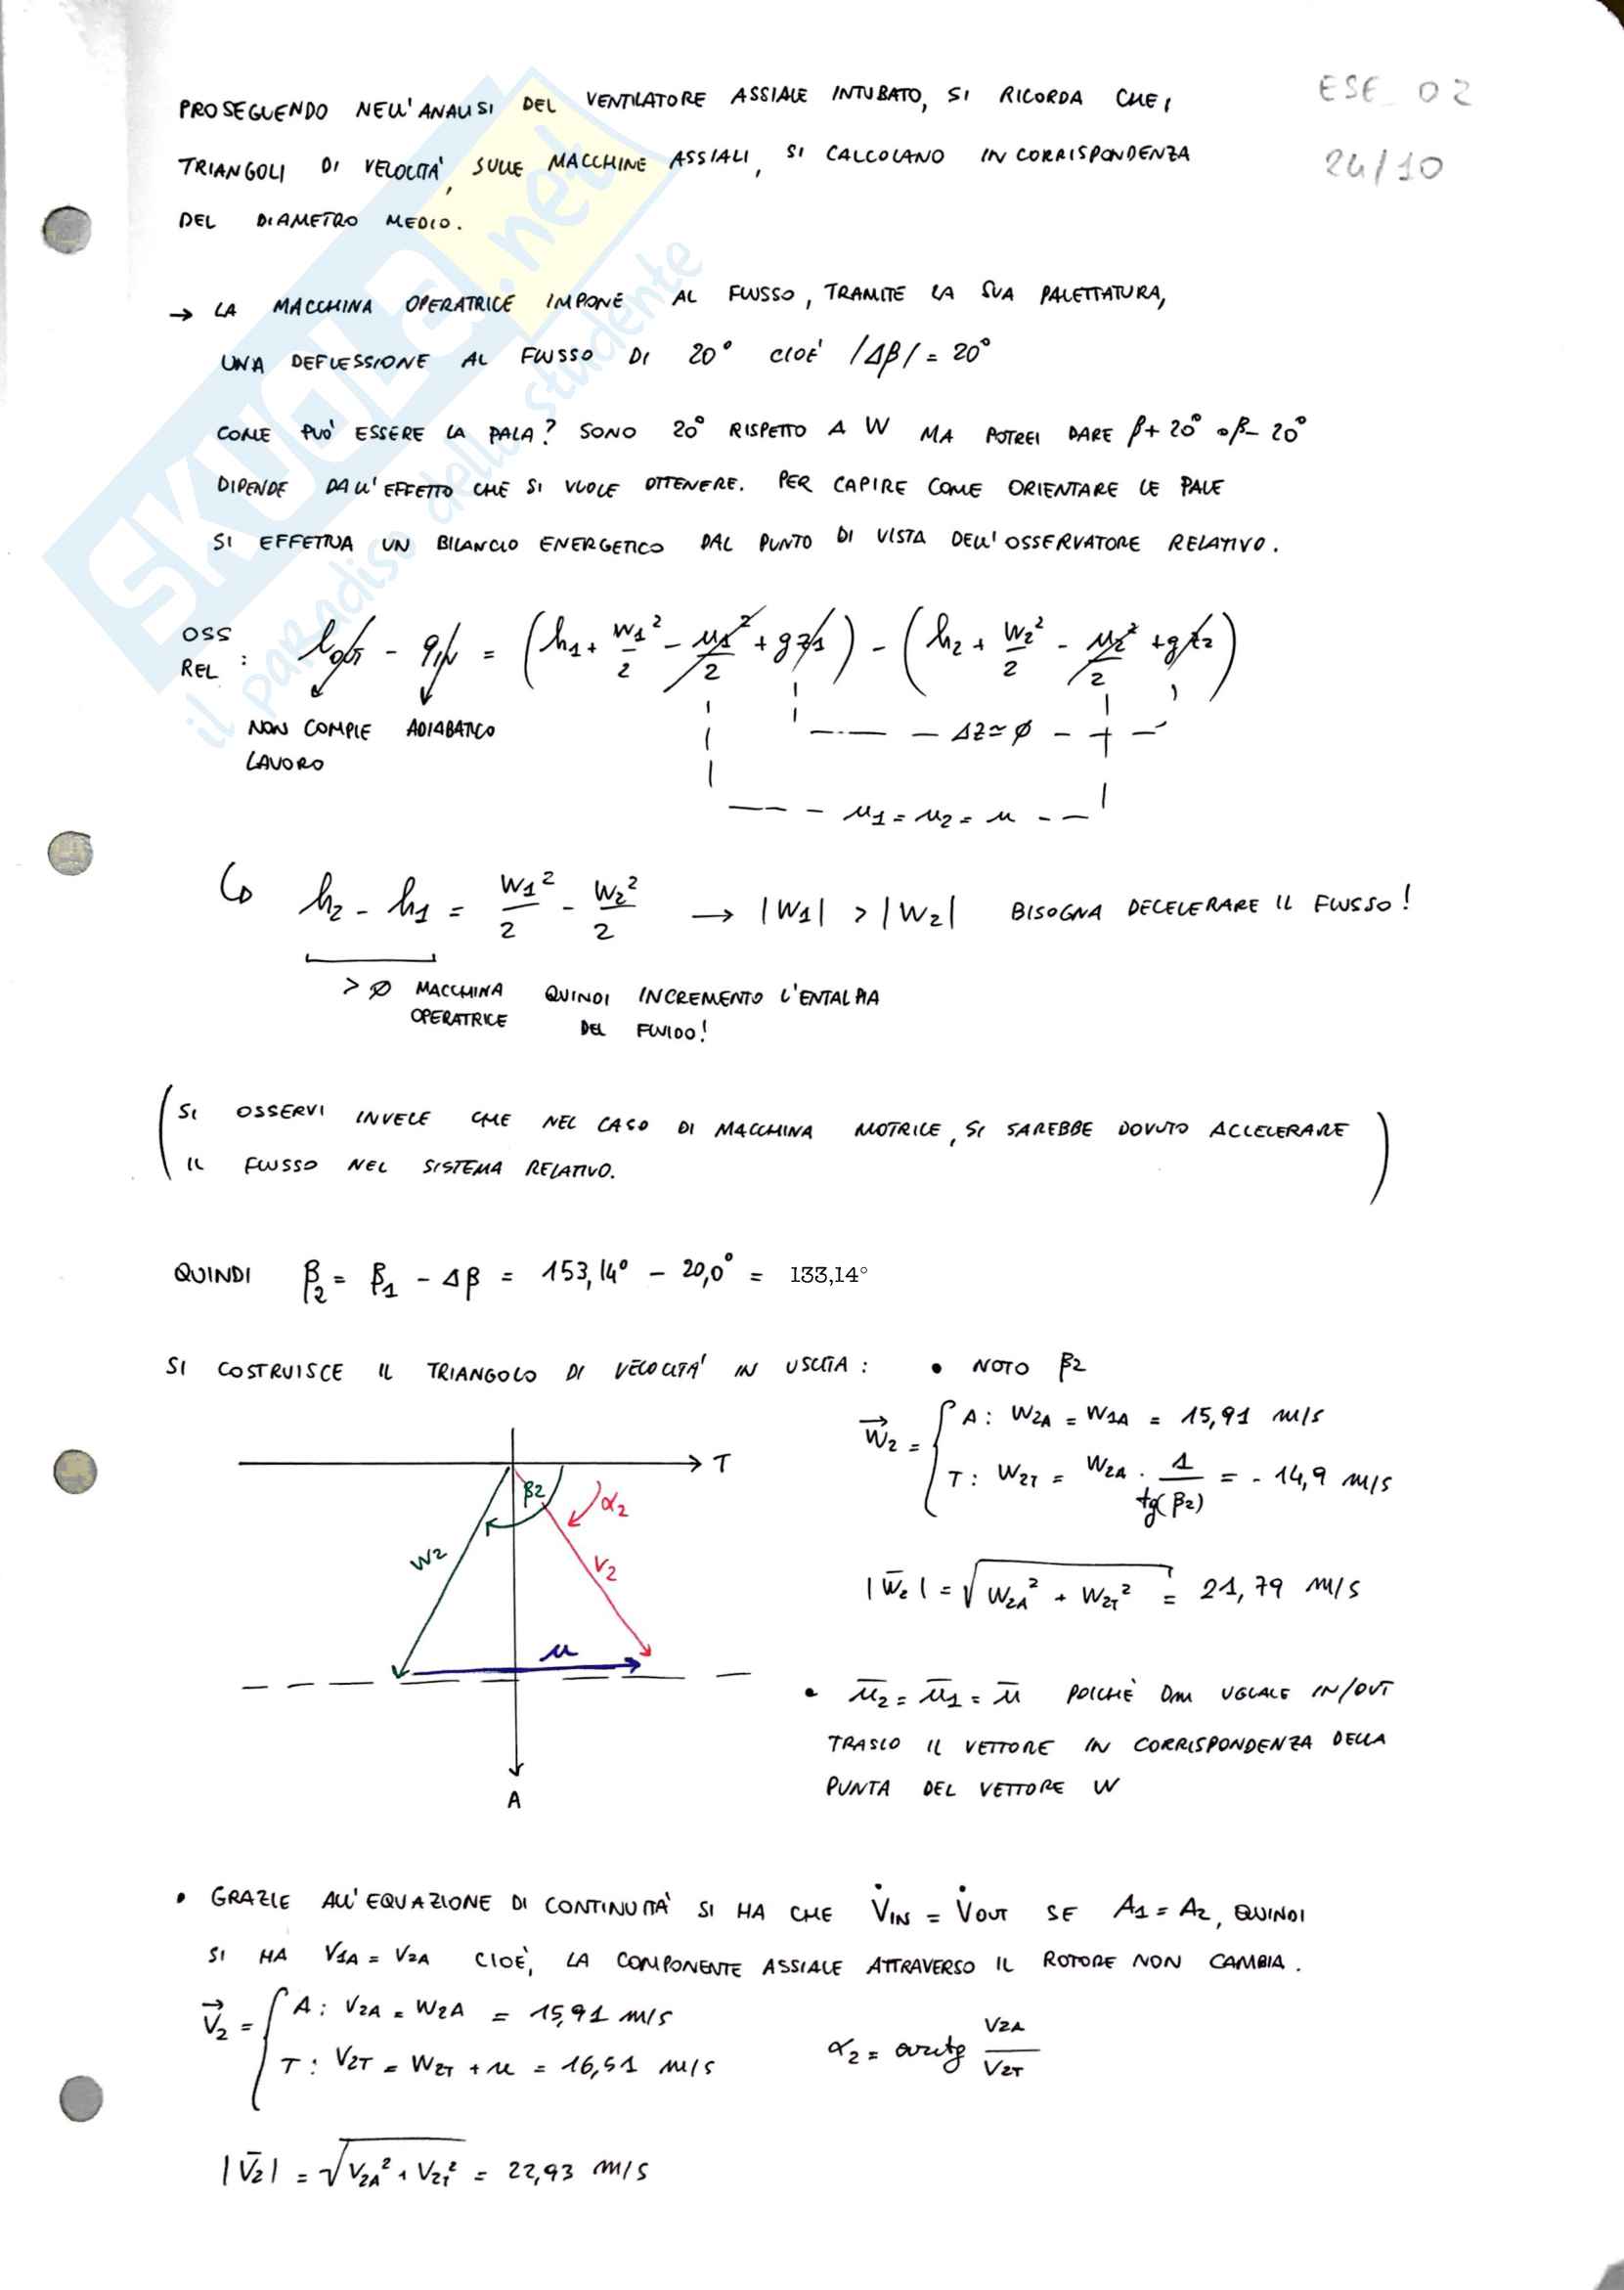 ESE_02
24/10
PROSEGUENDO NELL'ANALISI DEL VENTILATORE ASSIALE INTUBATO, SI RICORDA CHE,
TRIANGOLI DI VELOCITA', SULLE MACCHINE ASSIALI, SI CALCOLANO IN CORRISPONDENZA
DEL DIAMETRO MEDIO.
→ LA MACCHINA OPERATRICE IMPONE AL FLUSSO, TRAMITE LA SUA PALETTATURA,
UNA DEFLESSIONE AL FLUSSO DI 20° CIOE' |Δβ| = 20°
COME PUO' ESSERE LA PALA? SONO 20° RISPETTO A W MA POTREI DARE β+20° o β-20°
DIPENDE DALL'EFFETTO CHE SI VUOLE OTTENERE. PER CAPIRE COME ORIENTARE LE PALE
SI EFFETTUA UN BILANCIO ENERGETICO DAL PUNTO DI VISTA DELL'OSSERVATORE RELATIVO.
OSS REL : lout - qin = (h1 + w1²/2 - u1²/2 + gz1) - (h2 + w2²/2 - u2²/2 + gz2)
NON COMPIE LAVORO
ADIABATICO
Δz ≃ ∅
u1 = u2 = u
h2 - h1 = w1²/2 - w2²/2 → |W1| > |W2| BISOGNA DECELERARE IL FLUSSO!
> ∅ MACCHINA OPERATRICE
QUINDI INCREMENTO L'ENTALPIA
DEL FLUIDO!
(SI OSSERVI INVECE CHE NEL CASO DI MACCHINA MOTRICE, SI SAREBBE DOVUTO ACCELERARE
IL FLUSSO NEL SISTEMA RELATIVO.)
QUINDI β2 = β1 - Δβ = 153,14° - 20,0° = 133,14°
SI COSTRUISCE IL TRIANGOLO DI VELOCITA' IN USCITA : • NOTO β2
W2 = { A: W2A = W1A = 15,91 m/s
T: W2T = W2A · 1/tg(β2) = -14,9 m/s
|W2| = √(W2A² + W2T²) = 21,79 m/s
T
β2
α2
W2
V2
u
A
• u2 = u1 = u POICHÈ Dm UGUALE IN/OUT
TRASLO IL VETTORE IN CORRISPONDENZA DELLA
PUNTA DEL VETTORE W
• GRAZIE ALL'EQUAZIONE DI CONTINUITÀ SI HA CHE V̇IN = V̇OUT SE A1 = A2, QUINDI
SI HA V1A = V2A CIOÈ, LA COMPONENTE ASSIALE ATTRAVERSO IL ROTORE NON CAMBIA.
V2 = { A: V2A = W2A = 15,91 m/s
T: V2T = W2T + u = 16,51 m/s
α2 = arctg V2A/V2T
|V2| = √(V2A² + V2T²) = 22,93 m/s
SKUOLA.net
il paradiso dello studente